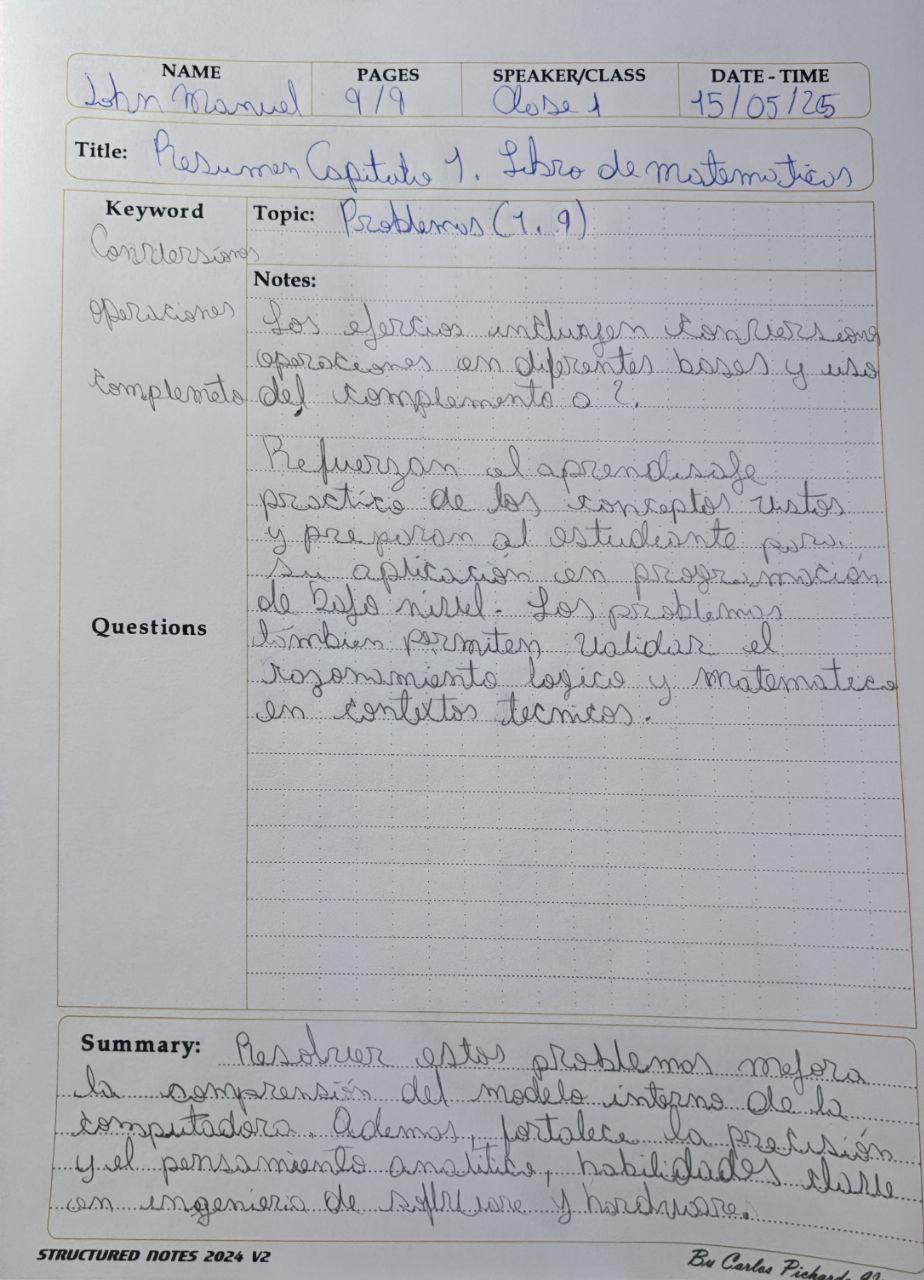 NAME PAGES SPEAKER/CLASS DATE - TIME
John Manuel 9/9 Clase 1 15/05/25
Title: Resumen Capitulo 1. Libro de matematicas
Keyword Topic: Problemas (1.9)
Conversiones
Notes:
operaciones
Los ejercios incluyen conversiones
operaciones en diferentes bases y uso
complemeto del complemento a 2.
Refuerzan el aprendisaje
practico de los conceptos vistos
y preparan al estudiante para
su aplicación en programación
de bajo nivel. Los problemas
Questions
tambien permiten validar el
razonamiento logico y matematico
en contextos tecnicos.
Summary: Resolver estos problemas mejora
la comprensión del modelo interno de la
computadora. Ademas, fortalece la precisión
y el pensamiento analitico, habilidades clave
en ingenieria de software y hardware.
STRUCTURED NOTES 2024 V2
By Carlos Pichard